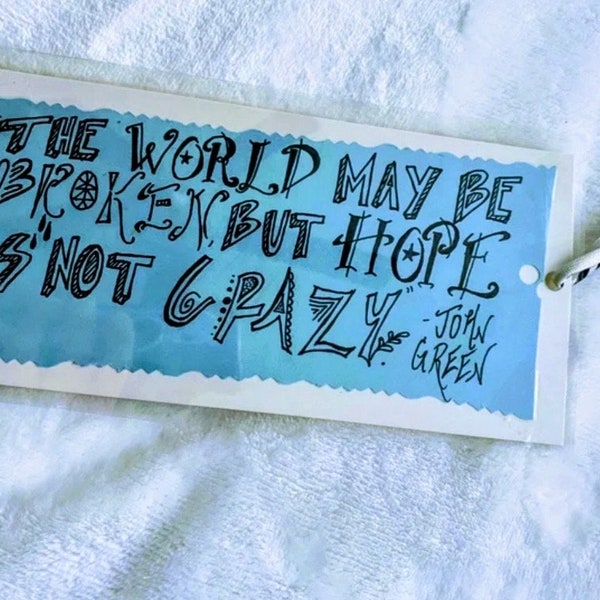 "THE WORLD MAY BE
BROKEN, BUT HOPE
IS NOT CRAZY."
- JOHN
GREEN